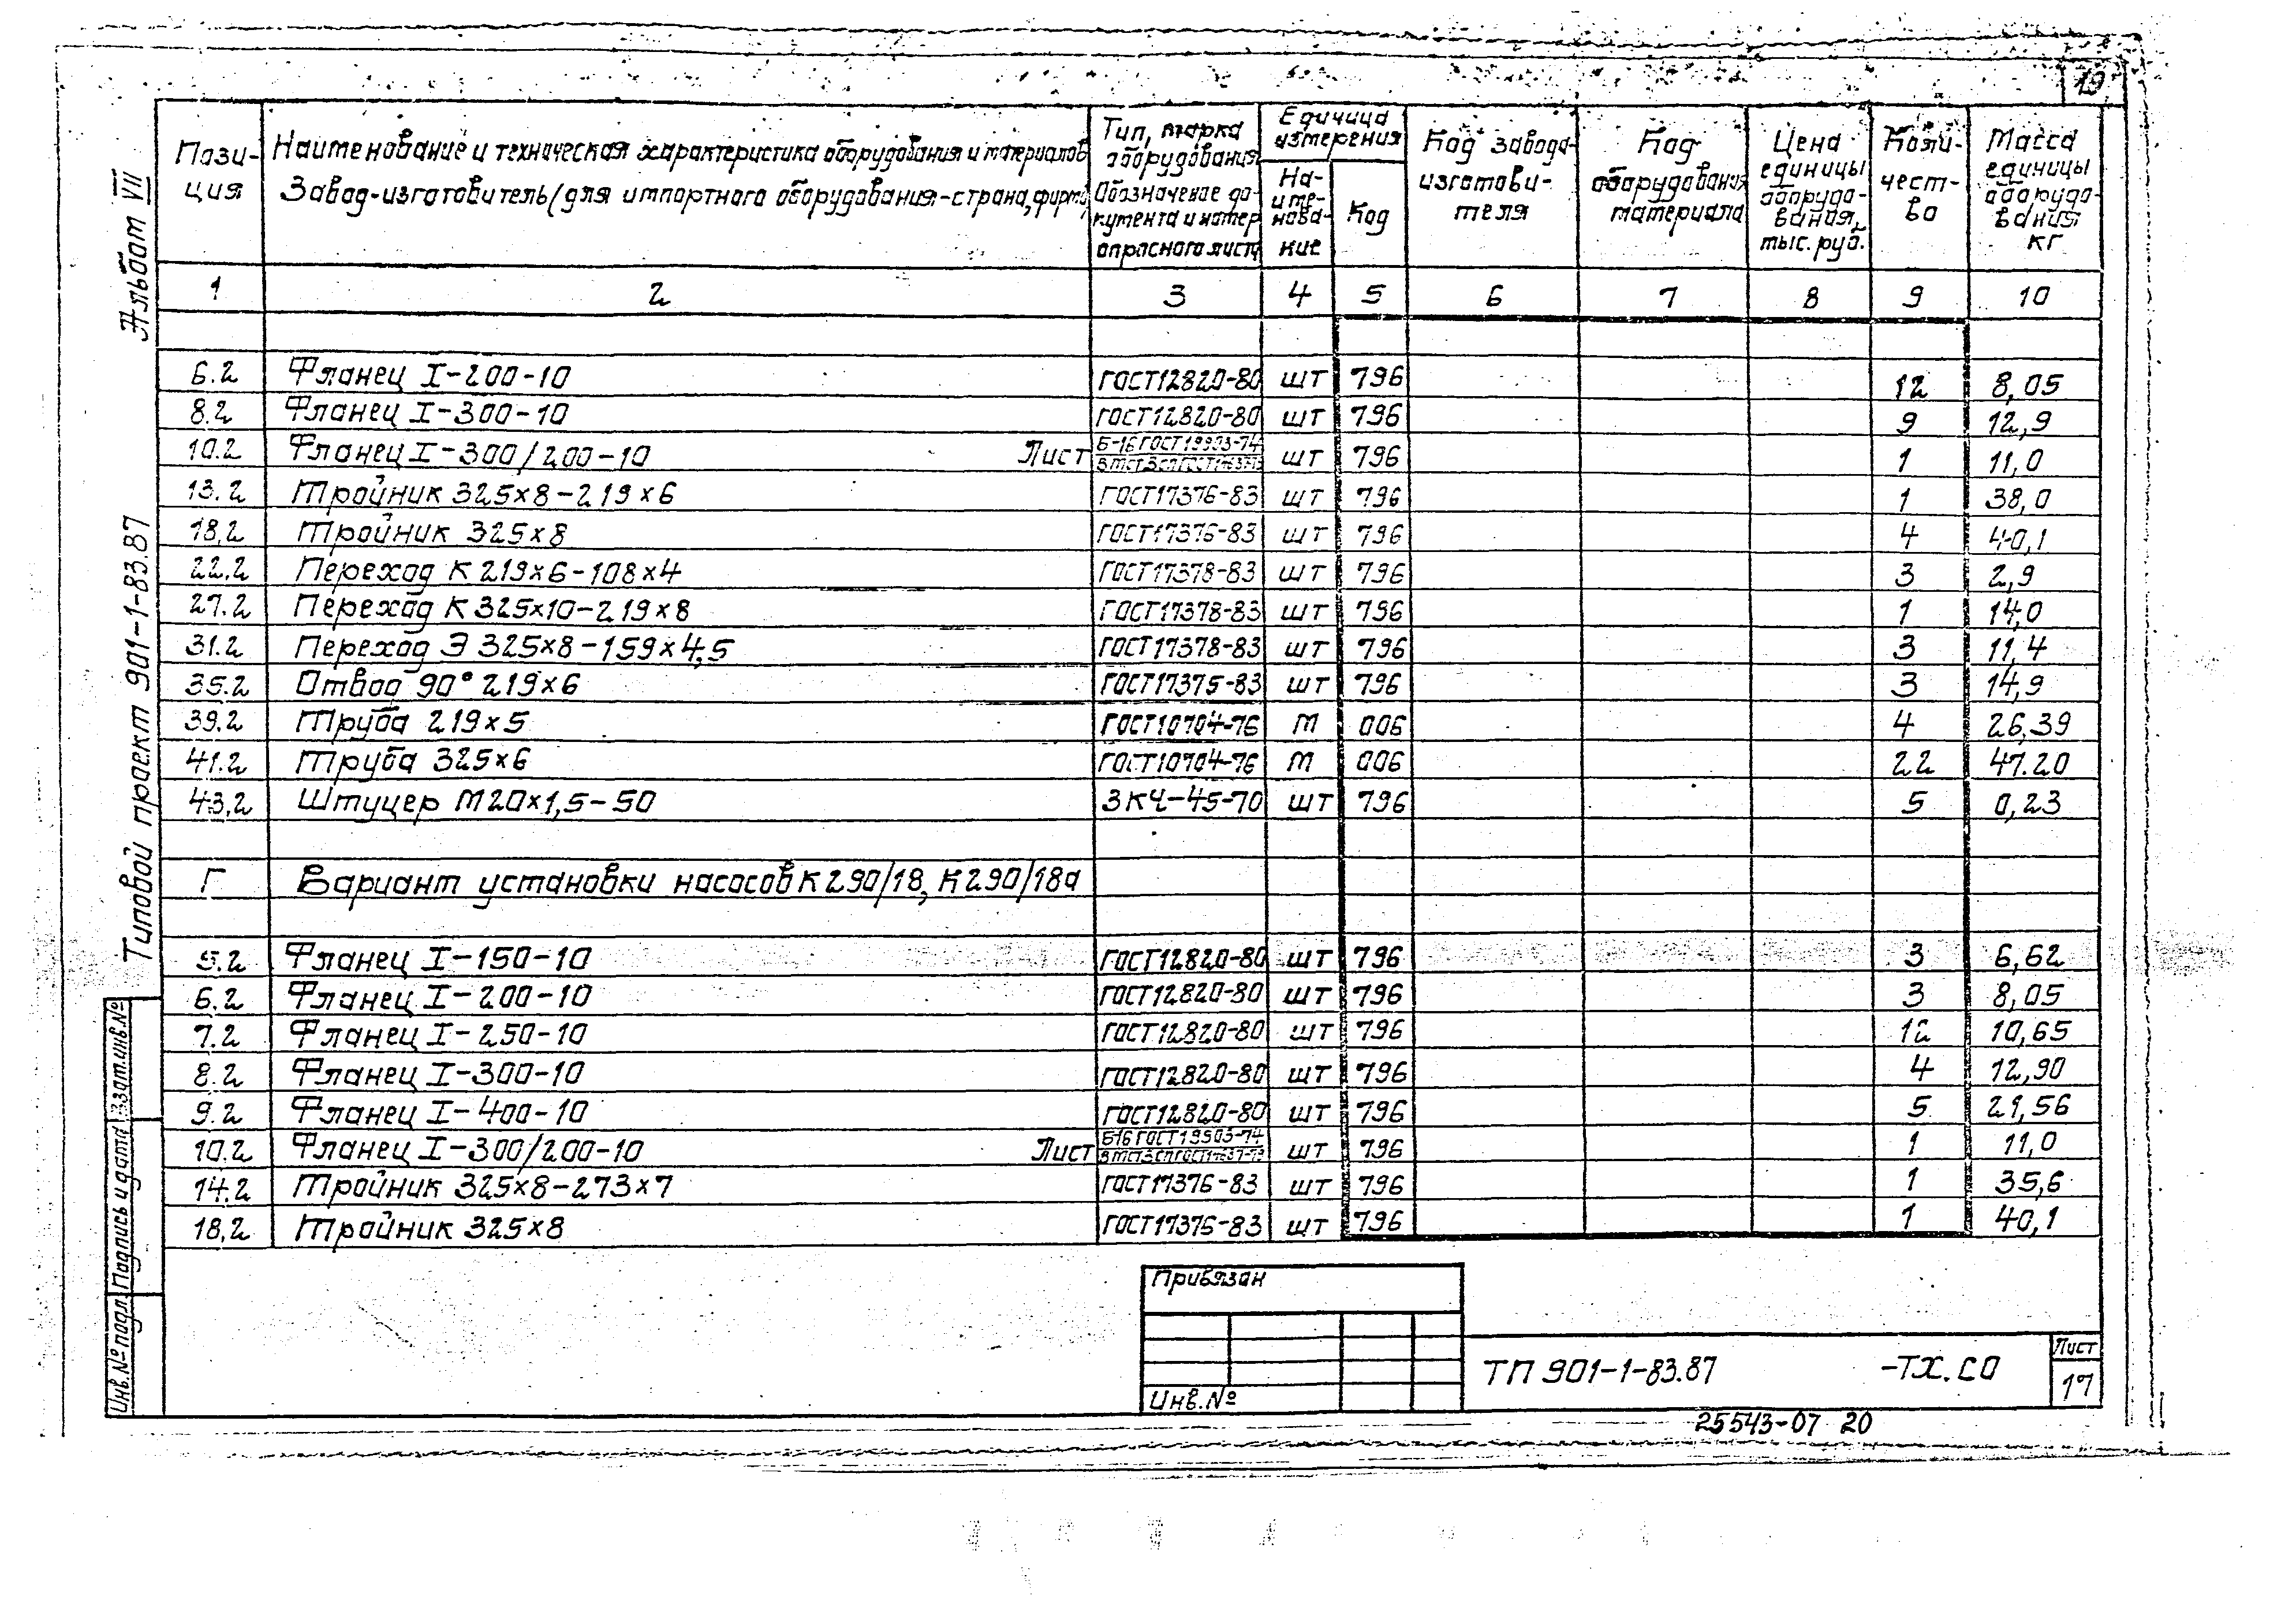 19
Альбом VII
Типовой проект 901-1-83.87
Пози-
ция
Наименование и техническая характеристика оборудования и материалов
Завод-изготовитель (для импортного оборудования-страна, фирма)
Тип, марка
оборудования
Обозначение до-
кумента и номер
опросного листа
Единица
измерения
На-
име-
нова-
ние
Код
Код завода-
изготови-
теля
Код
оборудования
материала
Цена
единицы
оборудо-
вания,
тыс. руб.
Коли-
чест-
во
Масса
единицы
оборудо-
вания
кг
1 2 3 4 5 6 7 8 9 10
6.2 Фланец I-200-10 ГОСТ12820-80 шт 796 12 8,05
8.2 Фланец I-300-10 ГОСТ12820-80 шт 796 9 12,9
10.2 Фланец I-300/200-10 Лист Б-16 ГОСТ19903-74 шт 796 1 11,0
13.2 Тройник 325х8-219х6 ГОСТ17376-83 шт 796 1 38,0
18,2 Тройник 325х8 ГОСТ17376-83 шт 796 4 40,1
22.2 Переход К 219х6-108х4 ГОСТ17378-83 шт 796 3 2,9
27.2 Переход К 325х10-219х8 ГОСТ17378-83 шт 796 1 14,0
31.2 Переход Э 325х8-159х4,5 ГОСТ17378-83 шт 796 3 11,4
35.2 Отвод 90° 219х6 ГОСТ17375-83 шт 796 3 14,9
39.2 Труба 219х5 ГОСТ10704-76 м 006 4 26,39
41.2 Труба 325х6 ГОСТ10704-76 м 006 22 47.20
43,2 Штуцер М20х1,5-50 ЗКЧ-45-70 шт 796 5 0,23
Г Вариант установки насосов К290/18, К290/18а
5.2 Фланец I-150-10 ГОСТ12820-80 шт 796 3 6,62
6.2 Фланец I-200-10 ГОСТ12820-80 шт 796 3 8,05
7.2 Фланец I-250-10 ГОСТ12820-80 шт 796 12 10,65
8.2 Фланец I-300-10 ГОСТ12820-80 шт 796 4 12,90
9.2 Фланец I-400-10 ГОСТ12820-80 шт 796 5 21,56
10.2 Фланец I-300/200-10 Лист Б-16 ГОСТ19903-74 шт 796 1 11,0
14.2 Тройник 325х8-273х7 ГОСТ17376-83 шт 796 1 35,6
18,2 Тройник 325х8 ГОСТ17376-83 шт 796 1 40,1
Взат.инв.№
Подпись и дата
Инв.№ подл.
Привязан
Инв.№
ТП 901-1-83.87 -ТХ.СО
Лист
17
25543-07 20